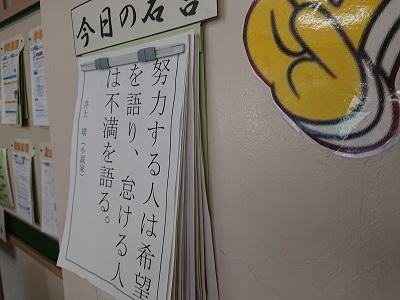 今日の名言
努力する人は希望
を語り、怠ける人
は不満を語る。
井上 靖（小説家）